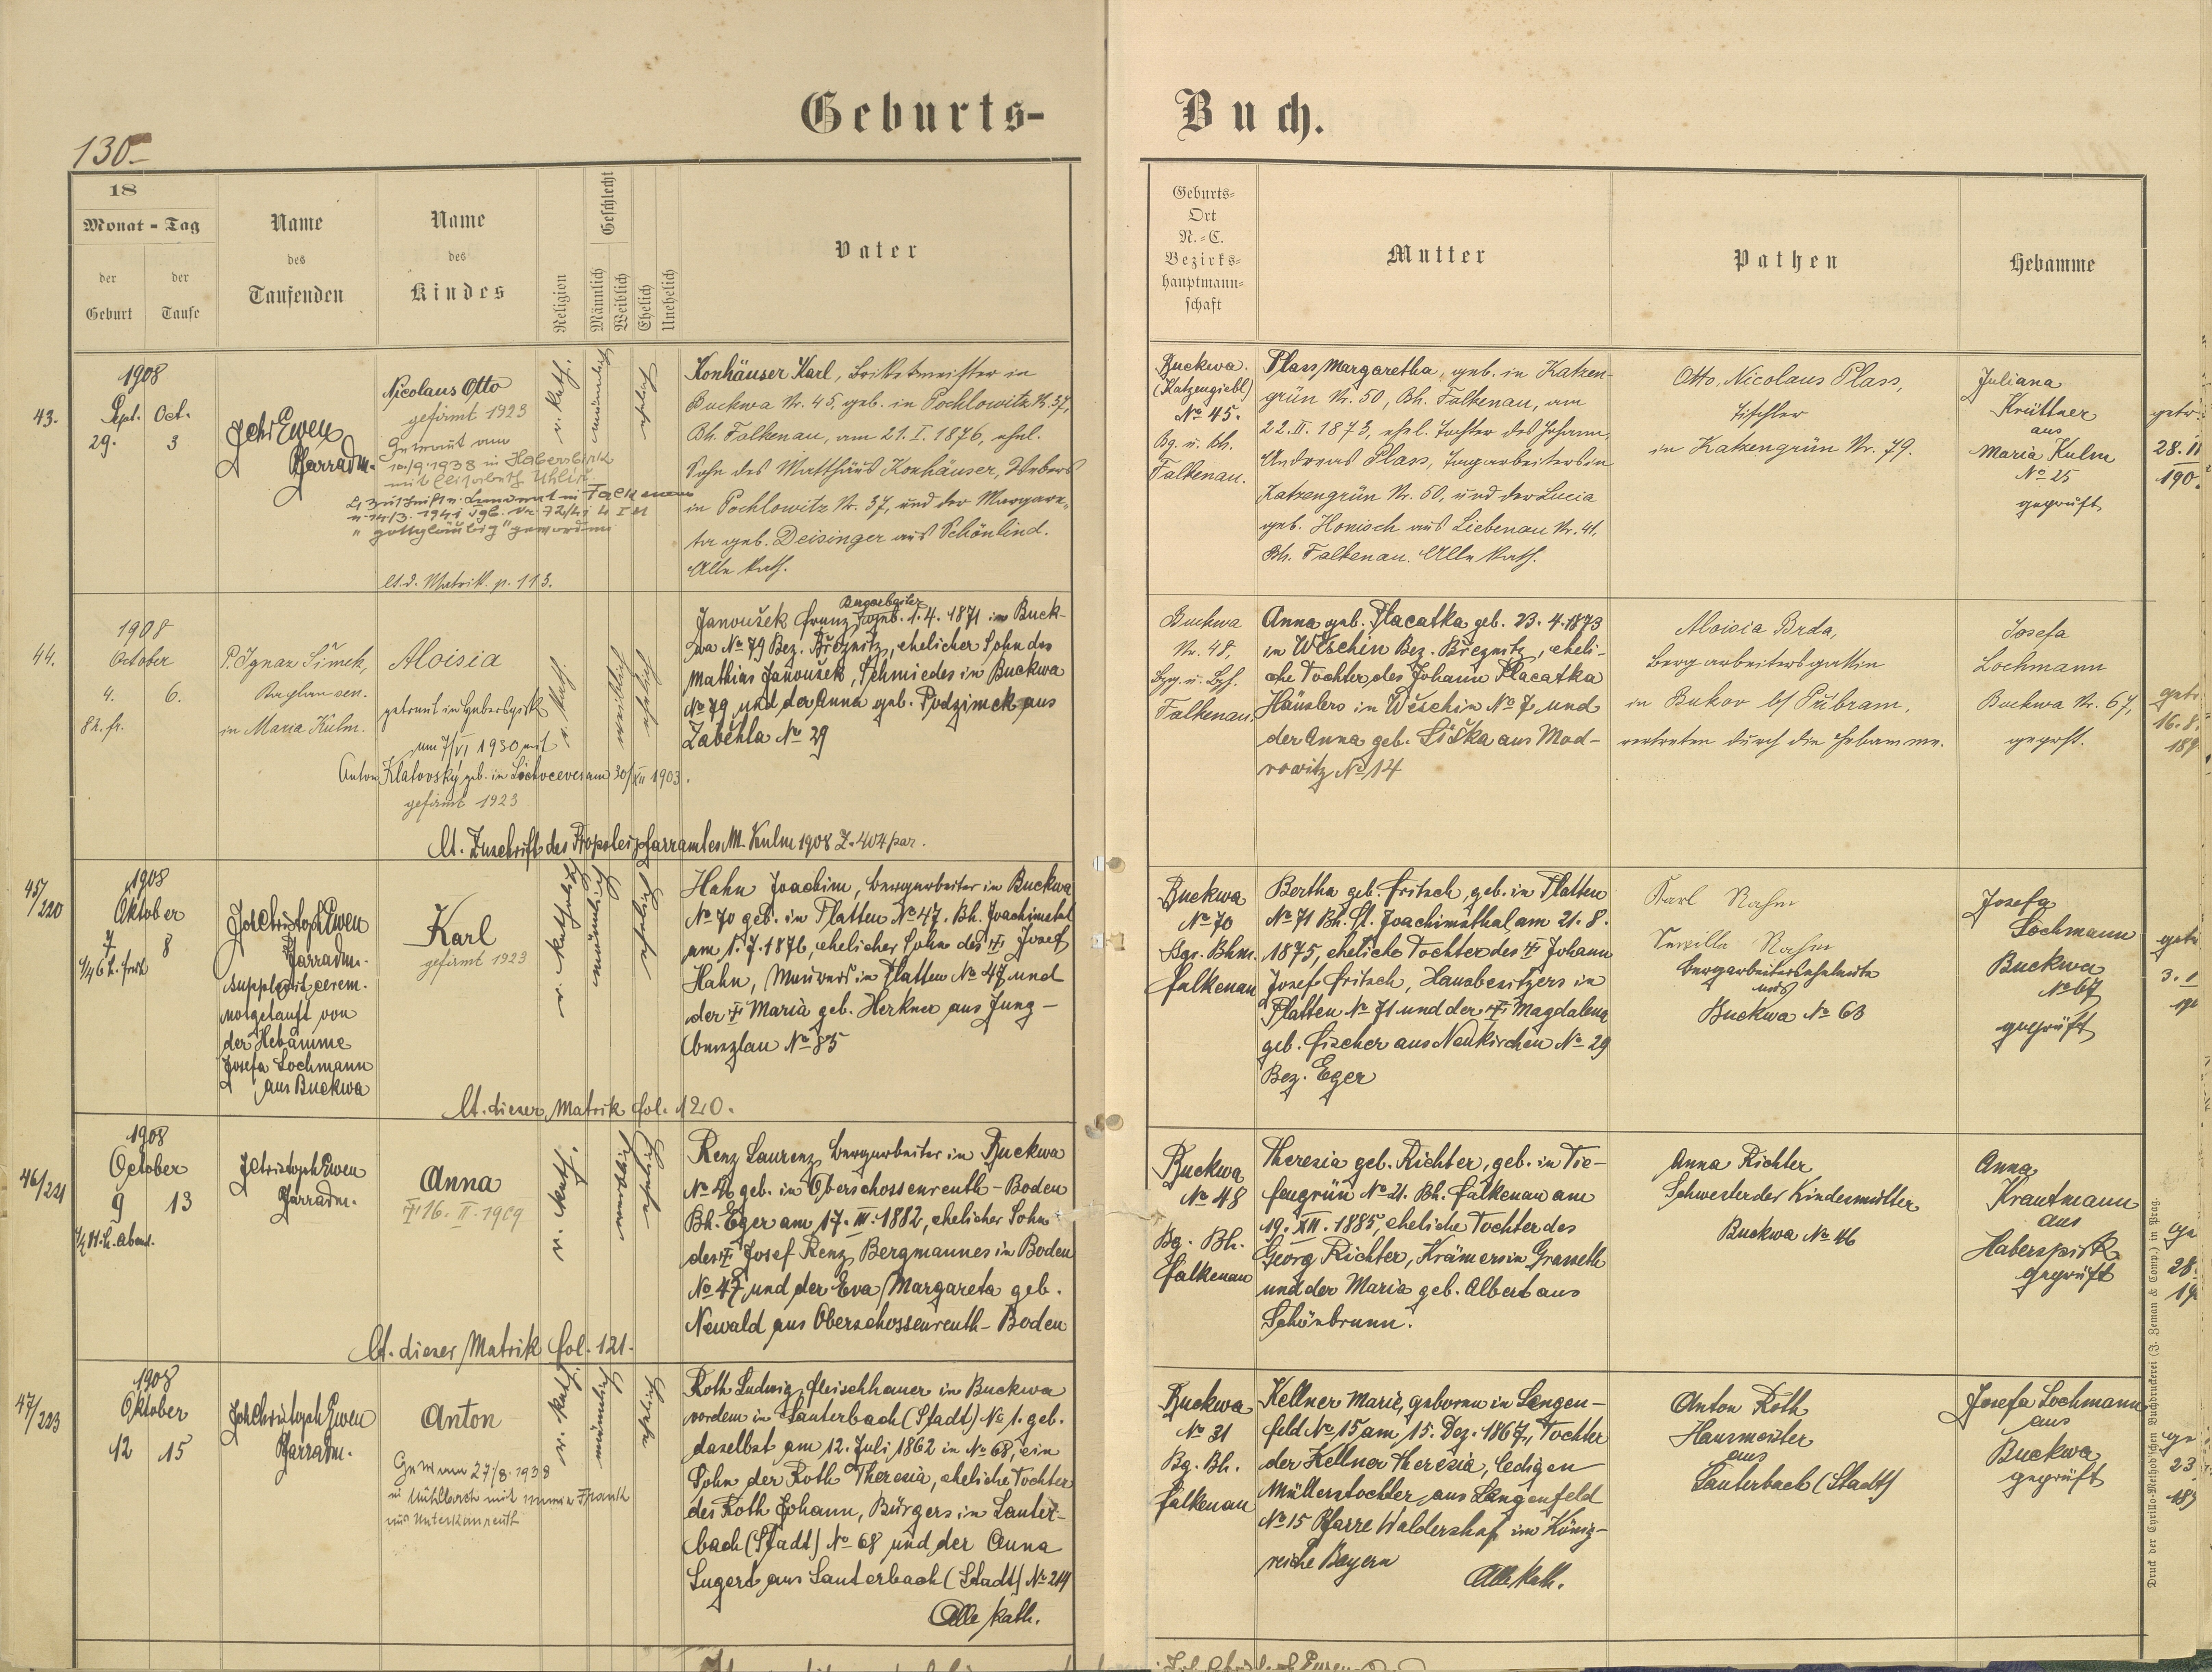 Geburts-
Buch.
130.
18
Monat - Tag
der
Geburt
der
Taufe
Name
des
Taufenden
Name
des
Kindes
Religion
Geschlecht
Männlich
Weiblich
Ehelich
Unehelich
Vater
Geburts-
Ort
N.-C.
Bezirks-
hauptmann-
schaft
Mutter
Pathen
Hebamme
43.
1908
Sept. Oct.
29. 3
Ewen
Pfarradm.
Nicolaus Otto
gefirmt 1923
Getraut am
10./9. 1938 in Habersbirk
mit Elisabeth Uhlir
"gottgläubig" geworden
lt. d. Matrik. p. 113.
r. kath.
männlich
ehelich
Konhäuser Karl, Brikktmeister in
Buckwa Nr. 45, geb. in Pochlowitz N. 37,
Bh. Falkenau, am 21. I. 1876, ehel.
Sohn des Matthäus Konhäuser, Webers
in Pochlowitz Nr. 37, und der Margare-
ta geb. Deisinger aus Schönlind.
Alle kath.
Buckwa.
(Katzengiebl)
No 45.
Bg. u. Bh.
Falkenau.
Plass Margaretha, geb. in Katzen-
grün Nr. 50, Bh. Falkenau, am
22. II. 1873, ehel. Tochter des Johann
Andreas Plass, Tagarbeiters in
Katzengrün Nr. 50, und der Lucia
geb. Honisch aus Liebenau Nr. 41,
Bh. Falkenau. Alle kath.
Otto Nicolaus Plass,
Tischler
in Katzengrün Nr. 79.
Juliana
Krüttner
aus
Maria Kulm
No 25
geprüft
getr.
28. II
190
44.
1908
October
4. 6.
8 h. fr.
P. Ignaz Šimek,
Kaplan sen.
in Maria Kulm.
Aloisia
getraut in Habersbirk
am 7/VI 1930 mit
Anton Klatovský geb. in am 30/XII 1903.
gefirmt 1923
lt. Zuschrift des Propsteipfarramtes M. Kulm 1908 Z. 404 par.
r. kath.
weiblich
ehelich
Bergarbeiter
Janoušek Franz geb. 1. 4. 1871 in Buck-
wa No 79 Bez. Březnitz, ehelicher Sohn des
Mathias Janoušek, Schmiedes in Buckwa
No 79 und der Anna geb. Podzimek aus
Zabéhla No 29
Buckwa
Nr. 48,
Bzg. u. Bzh.
Falkenau.
Anna geb. Placatka geb. 23. 4. 1873
in Wěschin Bez. Březnitz, eheli-
che Tochter des Johann Placatka
Häuslers in Wěschin No 7 und
der Anna geb. Šiška aus Mod-
rowitz No 14
Aloisia Brda,
Bergarbeitersgattin
in Bukov b/ Přibram,
vertreten durch die Hebamme.
Josefa
Lochmann
Buckwa Nr. 67,
geprft.
getr
16. 8.
189
45/220
1908
Oktober
7 8
1/4 6 h. früh
Joh Christoph Ewen
Pfarradm.
supplevit cerem.
notgetauft von
der Hebamme
Josefa Lochmann
aus Buckwa
Karl
gefirmt 1923
lt. dieser Matrik fol. 120.
r. katholisch
männlich
ehelich
Hahn Joachim, Bergarbeiter in Buckwa
No 70 geb. in Platten No 47. Bh. Joachimstal
am 1. 7. 1876, ehelicher Sohn des † Josef
Hahn, Maurers in Platten No 47 und
der † Maria geb. Herkner aus Jung-
bunzlau No 85
Buckwa
No 70
Bgr. Bhm.
Falkenau
Bertha geb. Fritsch, geb. in Platten
No 71 Bh. St. Joachimsthal, am 21. 8.
1875, eheliche Tochter des † Johann
Josef Fritsch, Hausbesitzers in
Platten No 71 und der † Magdalena
geb. Fischer aus Neukirchen No 29
Bez. Eger
Karl Rahm
Rahm
Bergarbeiterseheleute
aus
Buckwa No 63
Josefa
Lochmann
Buckwa
No 67
geprüft
getr
3. 1
46/221
1908
October
9 13
1/2 11. h. abend.
J Christoph Ewen
Pfarradm.
Anna
† 16. II. 1909
lt. dieser Matrik fol. 121.
r. kath.
weiblich
eheliche
Renz Laurenz, Bergarbeiter in Buckwa
No 46 geb. in Oberschossenreuth - Boden
Bh. Eger am 17. III. 1882, ehelicher Sohn
des † Josef Renz, Bergmannes in Boden
No 47 und der Eva Margareta geb.
Newald aus Oberschossenreuth - Boden
Buckwa
No 48
Bg. Bh.
Falkenau
Theresia geb. Richter, geb. in Tie-
fengrün No 21. Bh. Falkenau am
19. XII. 1885, eheliche Tochter des
Georg Richter, Krämers in Grasseth
und der Maria geb. Albert aus
Schönbrunn.
Anna Richter
Schwester der Kindesmutter
Buckwa No 46
Anna
Krautmann
aus
Haberspirk
geprüft
28.
47/223
1908
Oktober
12 15
Joh Christoph Ewen
Pfarradm.
Anton
Getr. am 27/8. 1938
in Mühlbach mit Frank
aus Unterkunreuth
r. kath.
männlich
eheliche
Roth Ludwig, Fleischhauer in Buckwa
vordem in Lauterbach (Stadt) No 1. geb.
daselbst am 12. Juli 1862 in No 68, ein
Sohn der Roth Theresia, eheliche Tochter
des Roth Johann, Bürgers in Lauter-
bach (Stadt) No 68 und der Anna
Lugert aus Lauterbach (Stadt) No 214
Alle kath.
Buckwa
No 31
Bg. Bh.
Falkenau
Kellner Marie, geboren in Lengen-
feld No 15 am 15. Dez. 1867, Tochter
der Kellner Theresia, ledigen
Müllerstochter aus Langenfeld
No 15 Pfarre Waldershof im König-
reiche Bayern
Alle kath.
Anton Roth
Hausmeister
aus
Lauterbach (Stadt)
Josefa Lochmann
aus
Buckwa
geprüft
23
Druck der Cyrillo-Method'schen Buchdruckerei (J. Zeman & Comp.) in Prag.